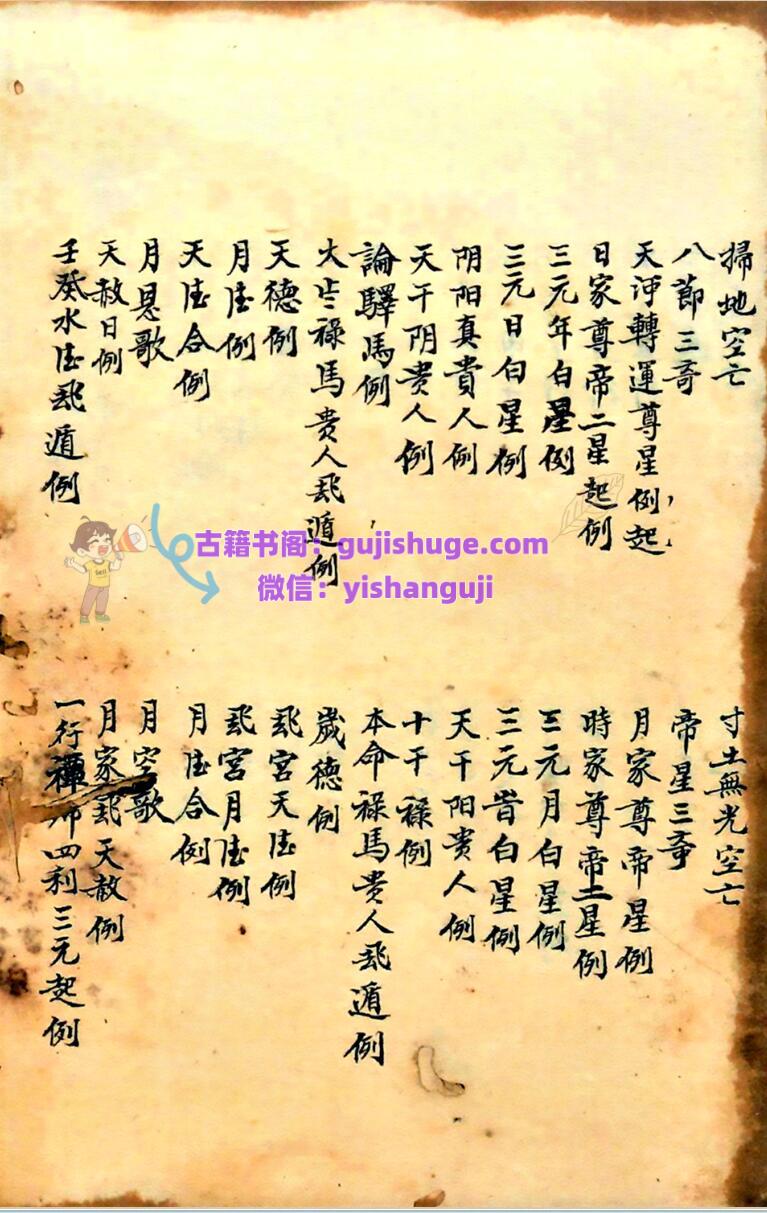 掃地空亡
八節三奇
天河轉運尊星例起
日家尊帝二星起例
三元年白星例
三元日白星例
阴阳真貴人例
天干阴貴人例
論驛馬例
大歲祿馬貴人飛遁例
天德例
月德例
天德合例
月恩歌
天赦日例
壬癸水德飛遁例
寸土無光空亡
帝星三奇
月家尊帝星例
時家尊帝二星例
三元月白星例
三元旹白星例
天干阳貴人例
十干祿例
本命祿馬貴人飛遁例
歲德例
飛宮天德例
飛宮月德例
月德合例
月空歌
月家飛天赦例
一行禪师四利三元起例
古籍书阁：gujishuge.com
微信：yishanguji